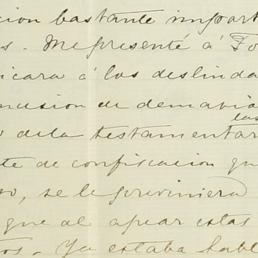 cion bastante import
s. Me presenté á Fo
icara á los deslinda
ncusion de demasia
las
o de la testamentar
te de confiscacion que
so, se le previniera
que al apear estas
os. Ya estaba habl